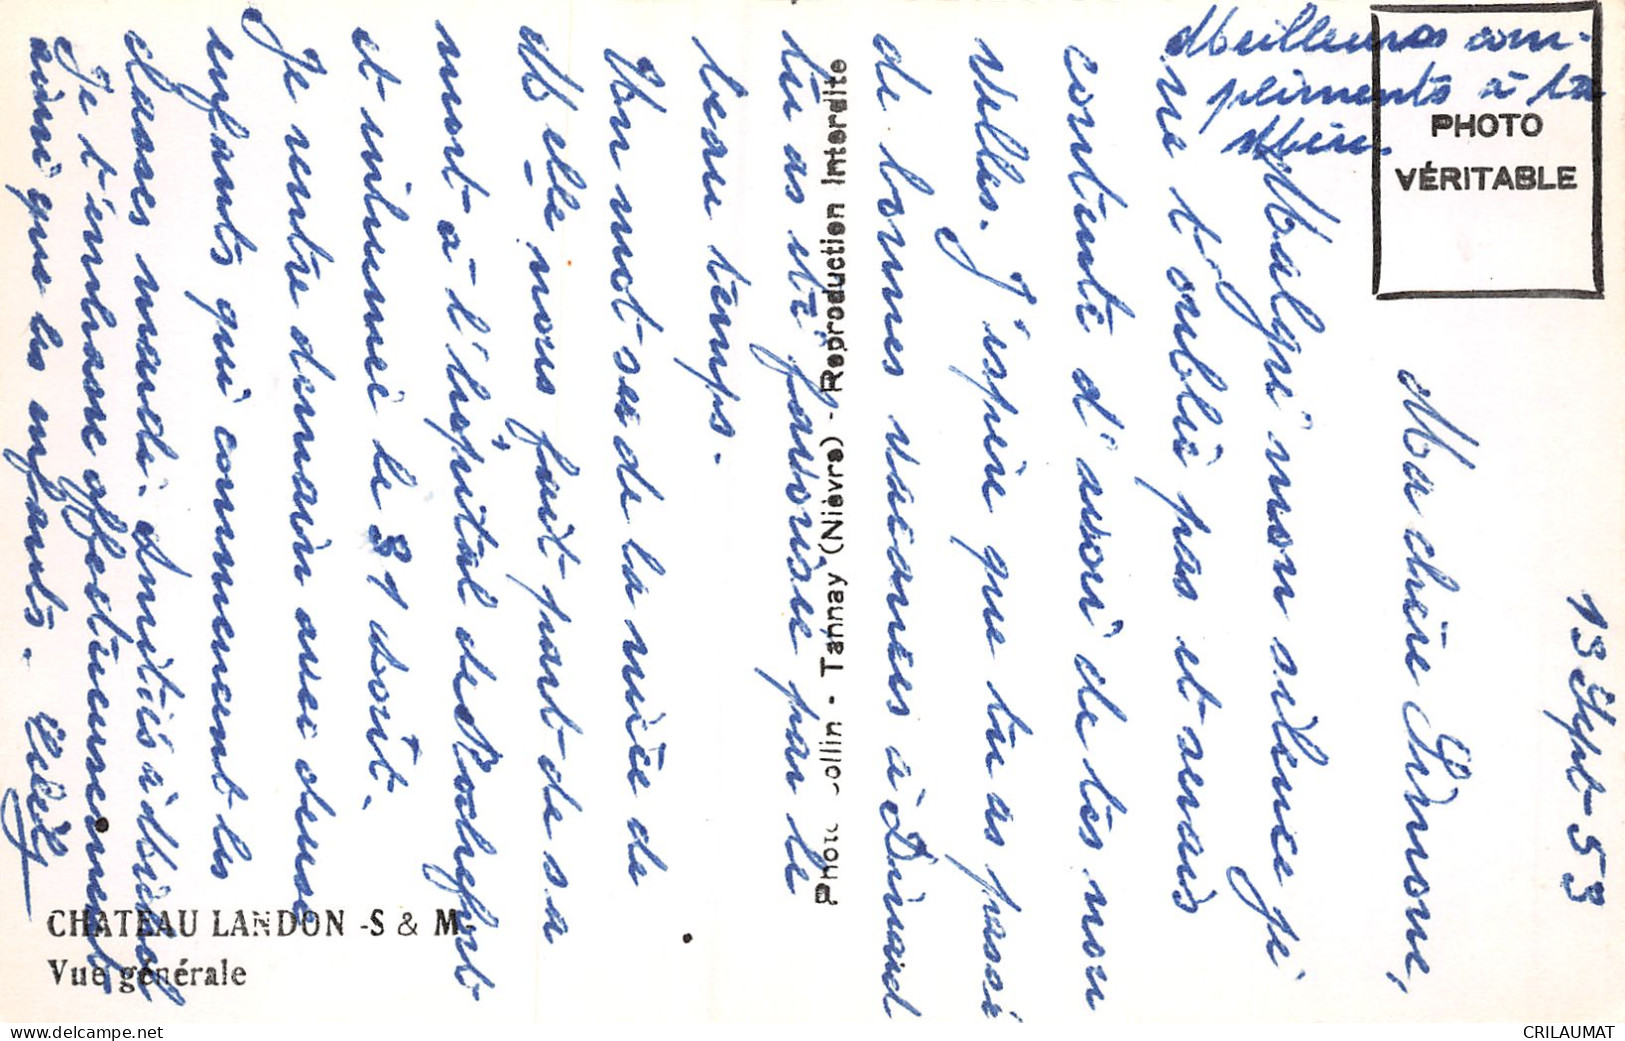 13 Sept-53
Ma chère Simone,
Malgré mon silence je
ne t'oublie pas et serais
contente d'avoir de tes nou
velles. J'espère que tu as passé
de bonnes vacances à Dinard
tu as été favorisée par le
beau temps.
Un mot de la nièce de
Melle nous fait part de sa
mort à l'hôpital de Rochefort
et inhumée le 31 Août.
Je rentre demain avec deux
enfants qui commencent les
classes mardi. Amitiés à
Je t'embrasse affectueusement
ainsi que les enfants.
Meilleurs com-
pliments à ta
Mère.
PHOTO
VÉRITABLE
Photo Collin - Tannay (Nièvre) - Reproduction Interdite
CHATEAU LANDON -S & M-
Vue générale
www.delcampe.net
CRILAUMAT